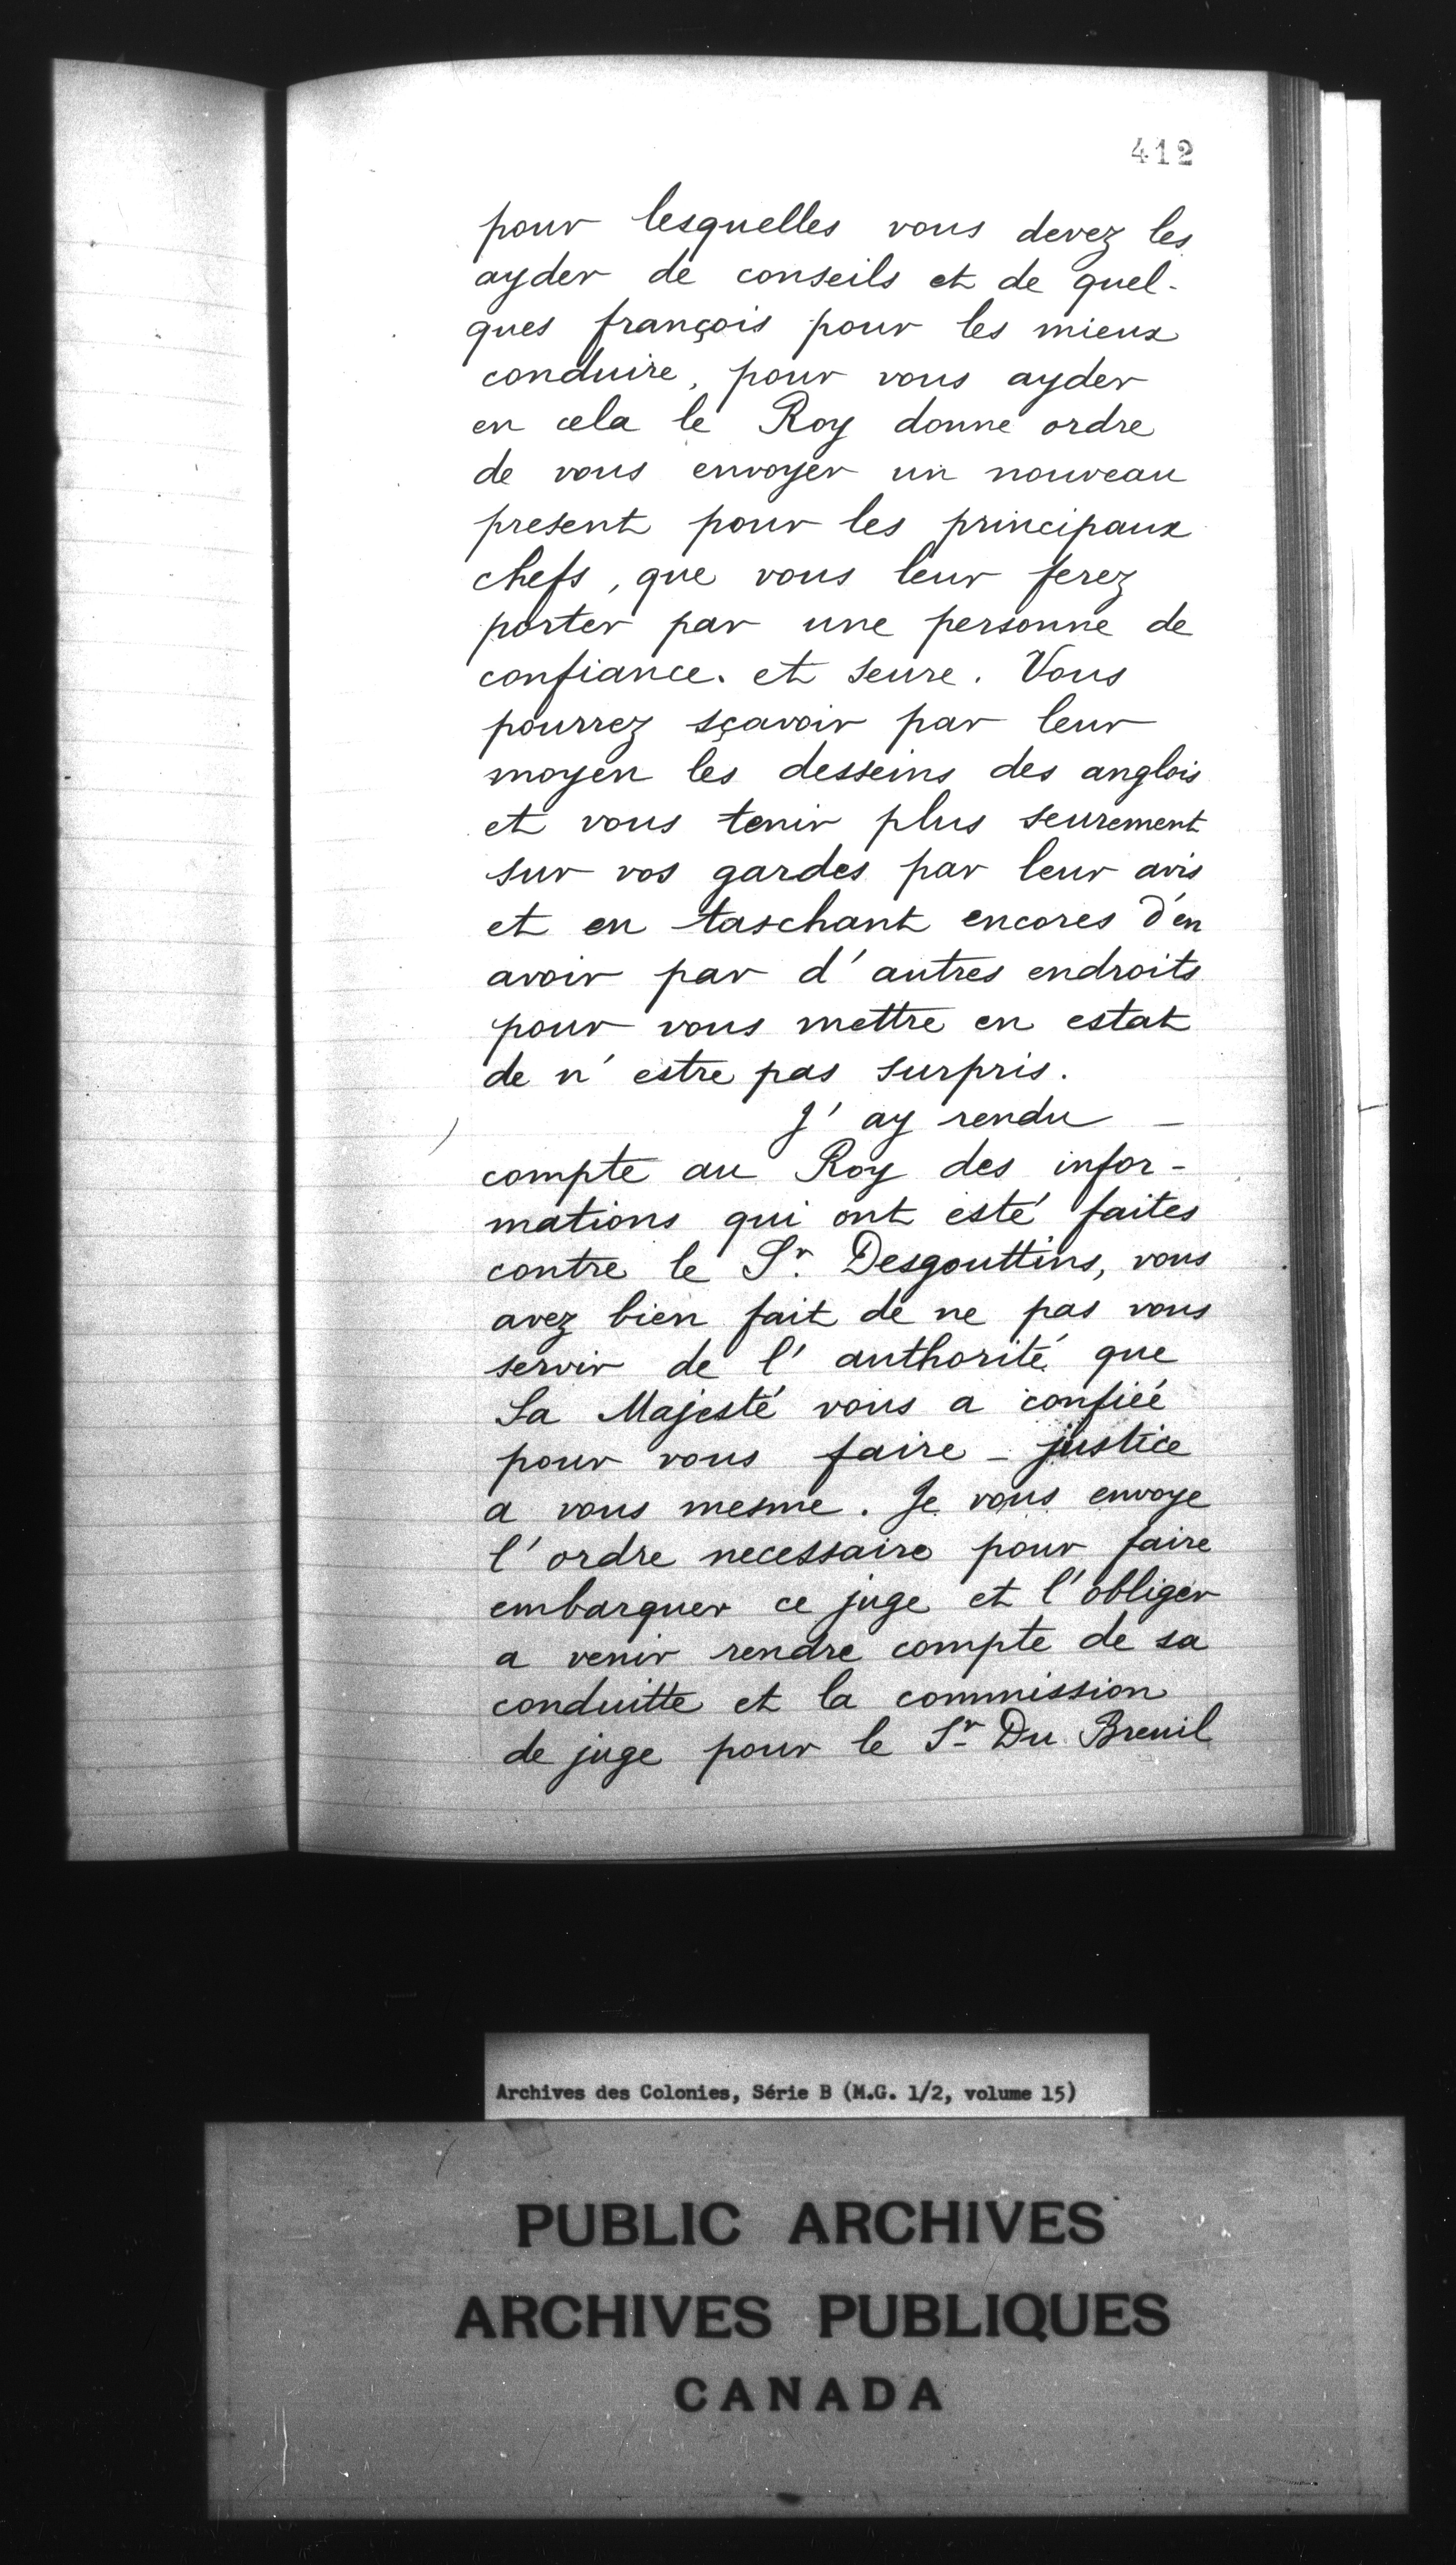 412
pour lesquelles vous devez les
ayder de conseils et de quel-
ques françois pour les mieux
conduire, pour vous ayder
en cela le Roy donne ordre
de vous envoyer un nouveau
present pour les principaux
chefs, que vous leur ferez
porter par une personne de
confiance. et seure. Vous
pourrez sçavoir par leur
moyen les desseins des anglois
et vous tenir plus seurement
sur vos gardes par leur avis
et en taschant encores d'en
avoir par d'autres endroits
pour vous mettre en estat
de n'estre pas surpris.
J'ay rendu —
compte au Roy des infor-
mations qui ont esté faites
contre le Sr. Desgouttins, vous
avez bien fait de ne pas vous
servir de l'authorité que
Sa Majesté vous a confiéé
pour vous faire - justice
a vous mesme. Je vous envoye
l'ordre necessaire pour faire
embarquer ce juge et l'obliger
a venir rendre compte de sa
conduitte et la commission
de juge pour le Sr Du Breuil
Archives des Colonies, Série B (M.G. 1/2, volume 15)
PUBLIC ARCHIVES
ARCHIVES PUBLIQUES
CANADA